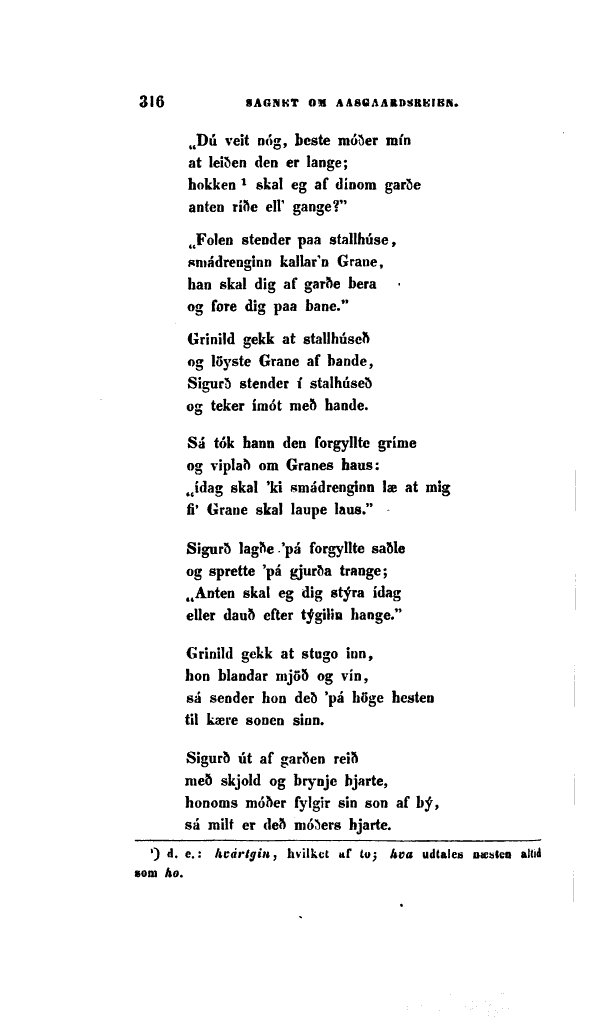 316 SAGNET OM AASGAARDSREIEN.
„Dú veit nóg, beste móðer mín
at leiðen den er lange;
hokken ¹ skal eg af dínom garðe
anten ríðe ell' gange?”
„Folen stender paa stallhúse,
smádrenginn kallar'n Grane,
han skal dig af garðe bera
og føre dig paa bane.”
Grinild gekk at stallhúseð
og löyste Grane af bande,
Sigurð stender í stalhúseð
og teker ímót með hande.
Sá tók hann den forgyllte gríme
og viplað om Granes haus:
„ídag skal 'ki smádrenginn læ at mig
fi' Grane skal laupe laus.”
Sigurð lagðe 'pá forgyllte saðle
og sprette 'pá gjurða trange;
„Anten skal eg dig stýra ídag
eller dauð efter týgilin hange.”
Grinild gekk at stugo inn,
hon blandar mjöð og vín,
sá sender hon deð 'pá höge hesten
til kære sonen sinn.
Sigurð út af garðen reið
með skjold og brynje bjarte,
honoms móðer fylgir sin son af bý,
sá milt er deð móðers hjarte.
¹) d. e.: hvártgin, hvilket af to; hva udtales næsten altid
som ho.